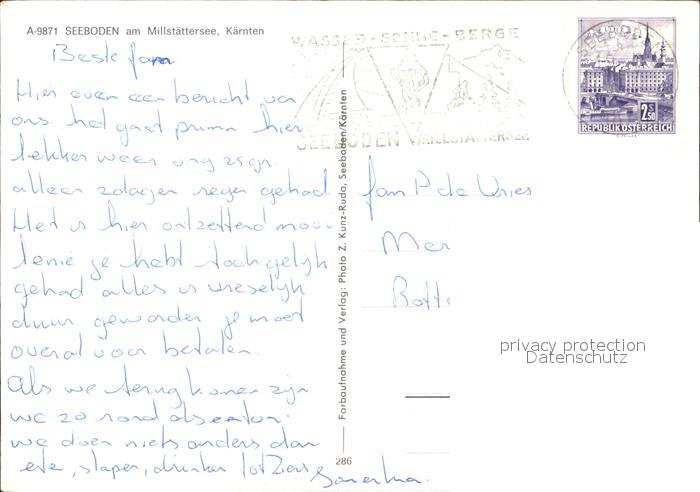 A-9871 SEEBODEN am Millstättersee, Kärnten
WASSER-SONNE-BERGE
SEEBODEN MILLSTÄTTERSEE
2S50
REPUBLIK ÖSTERREICH
Beste fam
Hier even een bericht van
ons. het gaat prima hier
lekker weer
alleen zdagen regen gehad
Het is hier ontzettend mooi
je hebt toch gelijk
gehad alles is vreselijk
duur geworden je moet
overal voor betalen.
Als we terug komen zijn
we zo rond als een ton.
we doen niets anders dan
ete, slapen, drinken tot ziens
fam P de Vries
Mer
Rott
Farbaufnahme und Verlag: Photo Z. Kunz-Ruda, Seeboden/Kärnten
286
privacy protection
Datenschutz